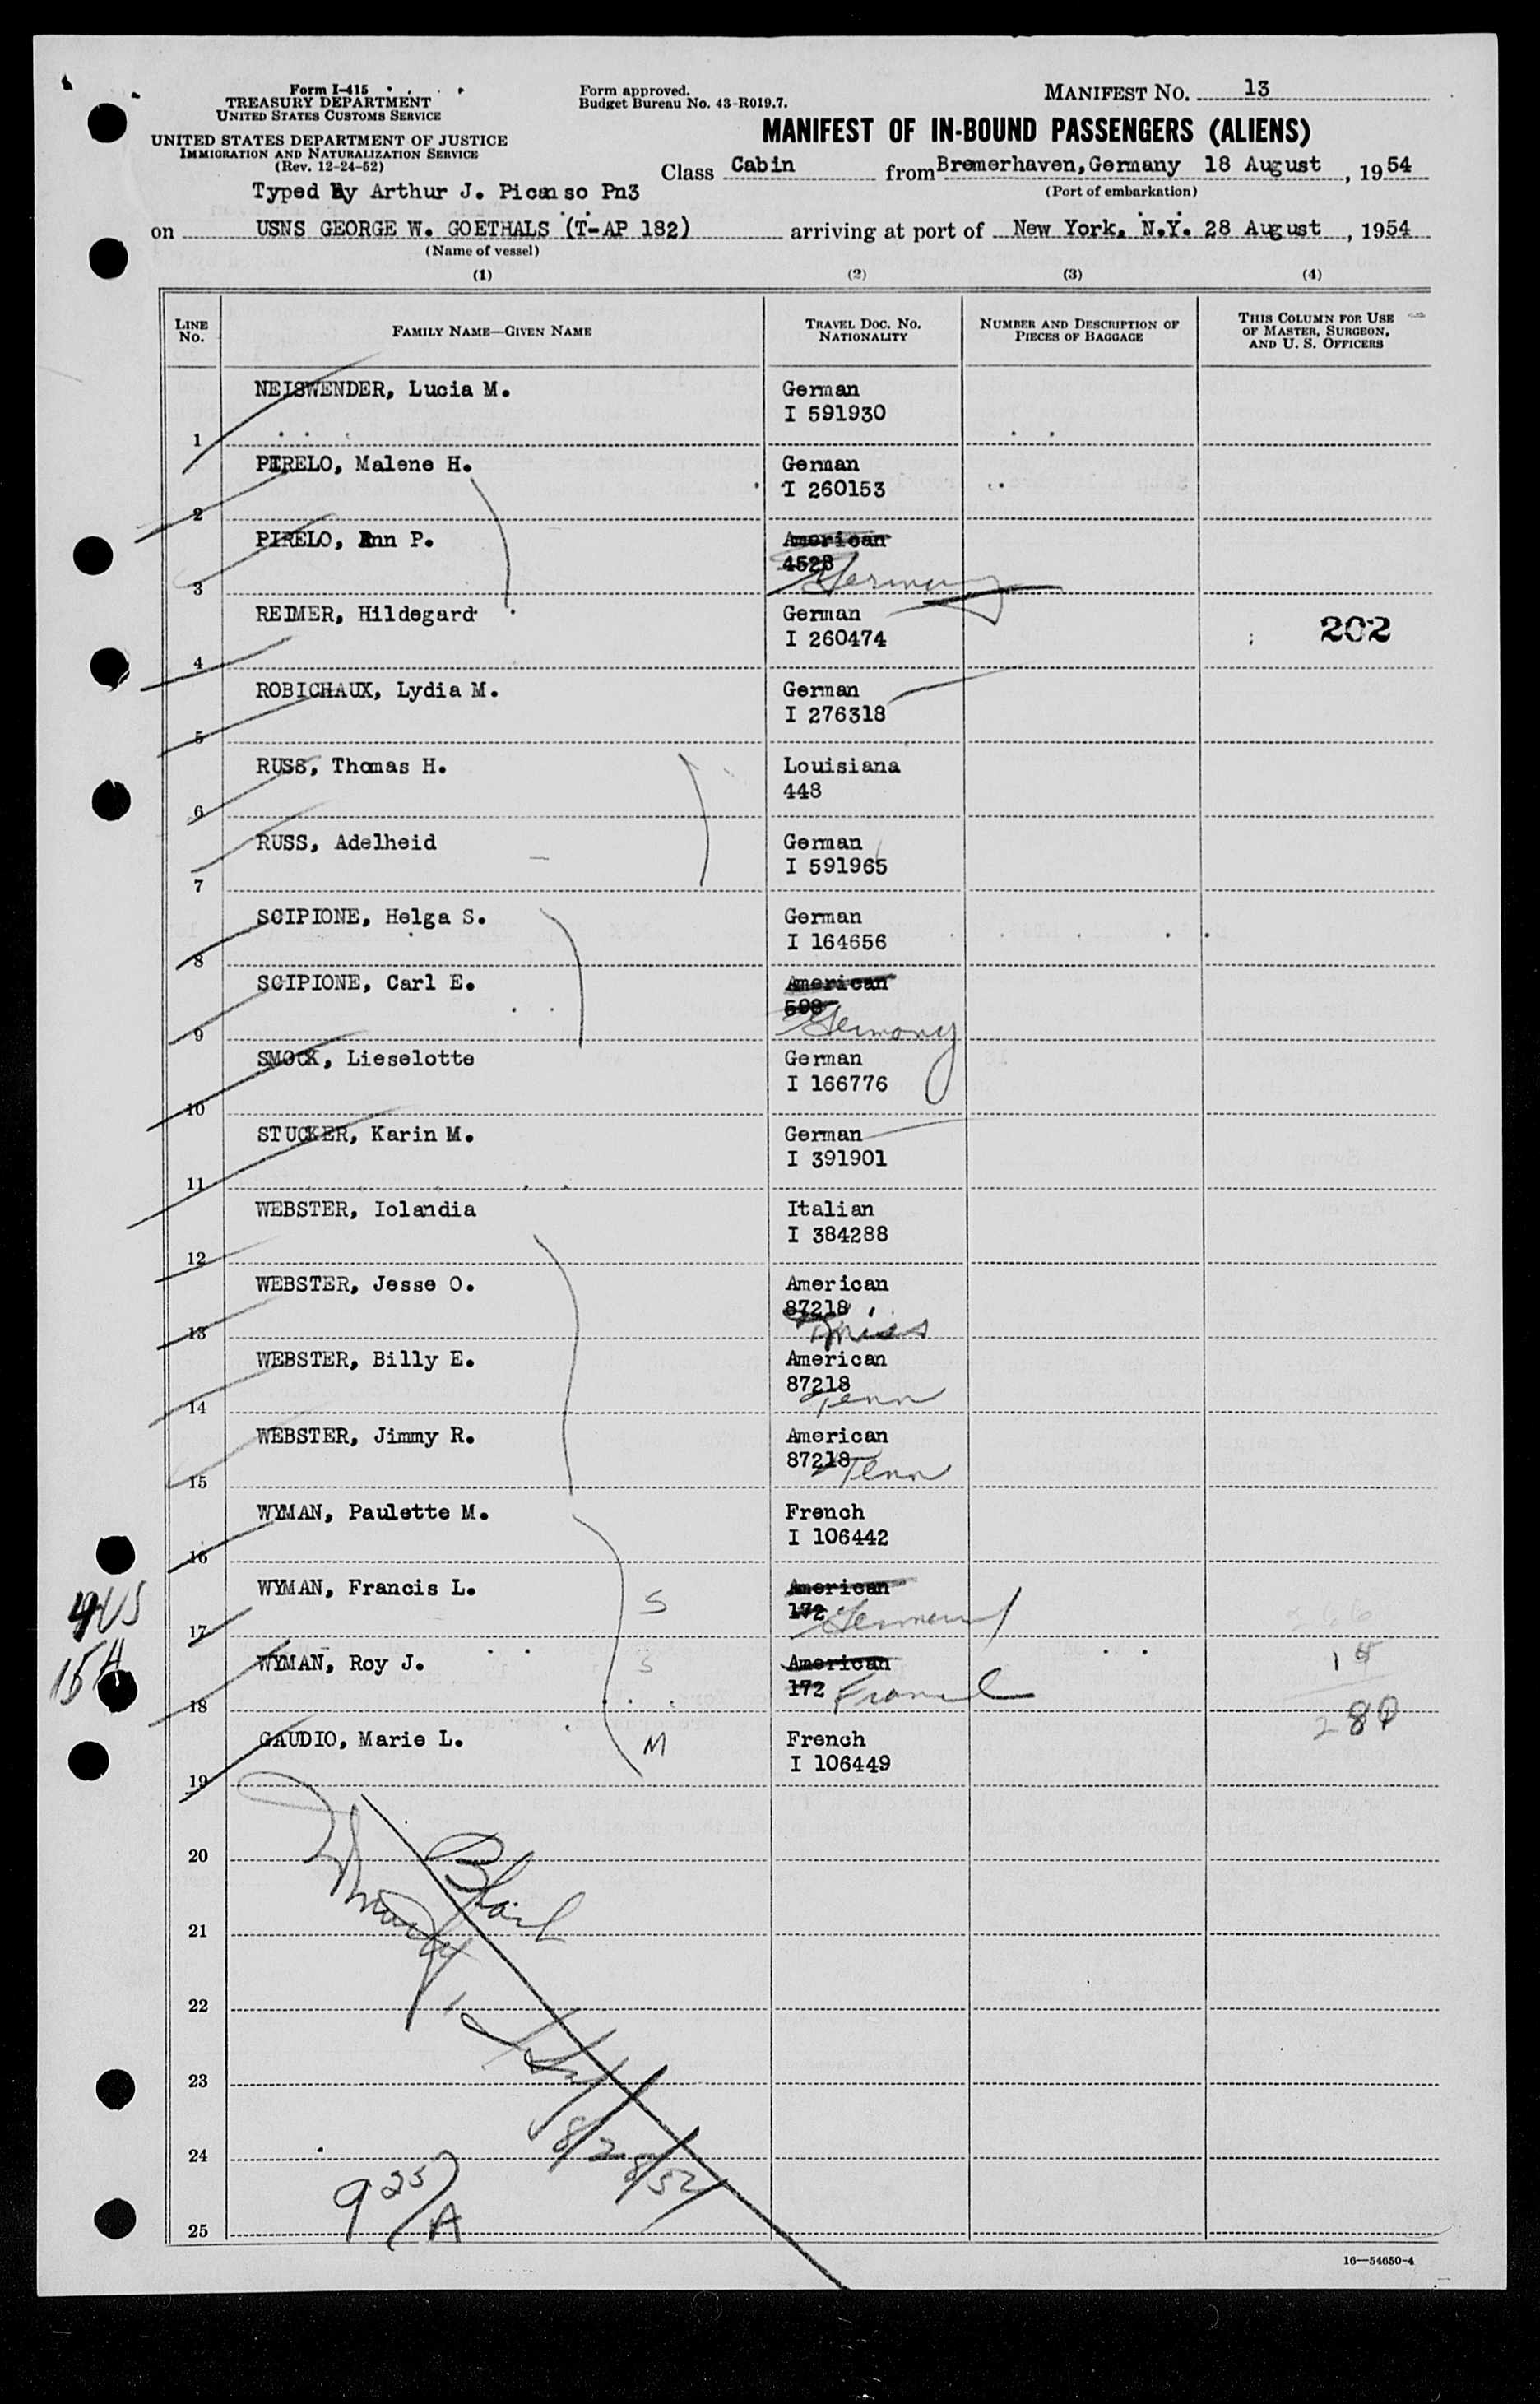 Form I-415
TREASURY DEPARTMENT
UNITED STATES CUSTOMS SERVICE
UNITED STATES DEPARTMENT OF JUSTICE
IMMIGRATION AND NATURALIZATION SERVICE
(Rev. 12-24-52)
Form approved.
Budget Bureau No. 43-R019.7.
MANIFEST NO. 13
MANIFEST OF IN-BOUND PASSENGERS (ALIENS)
Class Cabin from Bremerhaven, Germany 18 August, 1954
(Port of embarkation)
Typed By Arthur J. Picanso Pn3
on USNS GEORGE W. GOETHALS (T-AP 182) arriving at port of New York, N.Y. 28 August, 1954
(Name of vessel)
(1) (2) (3) (4)
LINE NO. FAMILY NAME—GIVEN NAME TRAVEL DOC. NO. NATIONALITY NUMBER AND DESCRIPTION OF PIECES OF BAGGAGE THIS COLUMN FOR USE OF MASTER, SURGEON, AND U. S. OFFICERS
NEISWENDER, Lucia M. German
1 I 591930
PIRELO, Malene H. German
2 I 260153
PIRELO, Ann P. American
3 4528 Germany
REIMER, Hildegard German
4 I 260474 202
ROBICHAUX, Lydia M. German
5 I 276318
RUSS, Thomas H. Louisiana
6 448
RUSS, Adelheid German
7 I 591965
SCIPIONE, Helga S. German
8 I 164656
SCIPIONE, Carl E. American
9 598 Germany
SMOCK, Lieselotte German
10 I 166776
STUCKER, Karin M. German
11 I 391901
WEBSTER, Iolandia Italian
12 I 384288
WEBSTER, Jesse O. American
13 87218 Miss
WEBSTER, Billy E. American
14 87218 Tenn
WEBSTER, Jimmy R. American
15 87218 Tenn
WYMAN, Paulette M. French
16 I 106442
4US
WYMAN, Francis L. S American
17 172 Germany
15A
WYMAN, Roy J. S American
18 172 France
280
GAUDIO, Marie L. M French
19 I 106449
20
21
22
23
8/28/54
24
9 25/A
25
16—54650-4